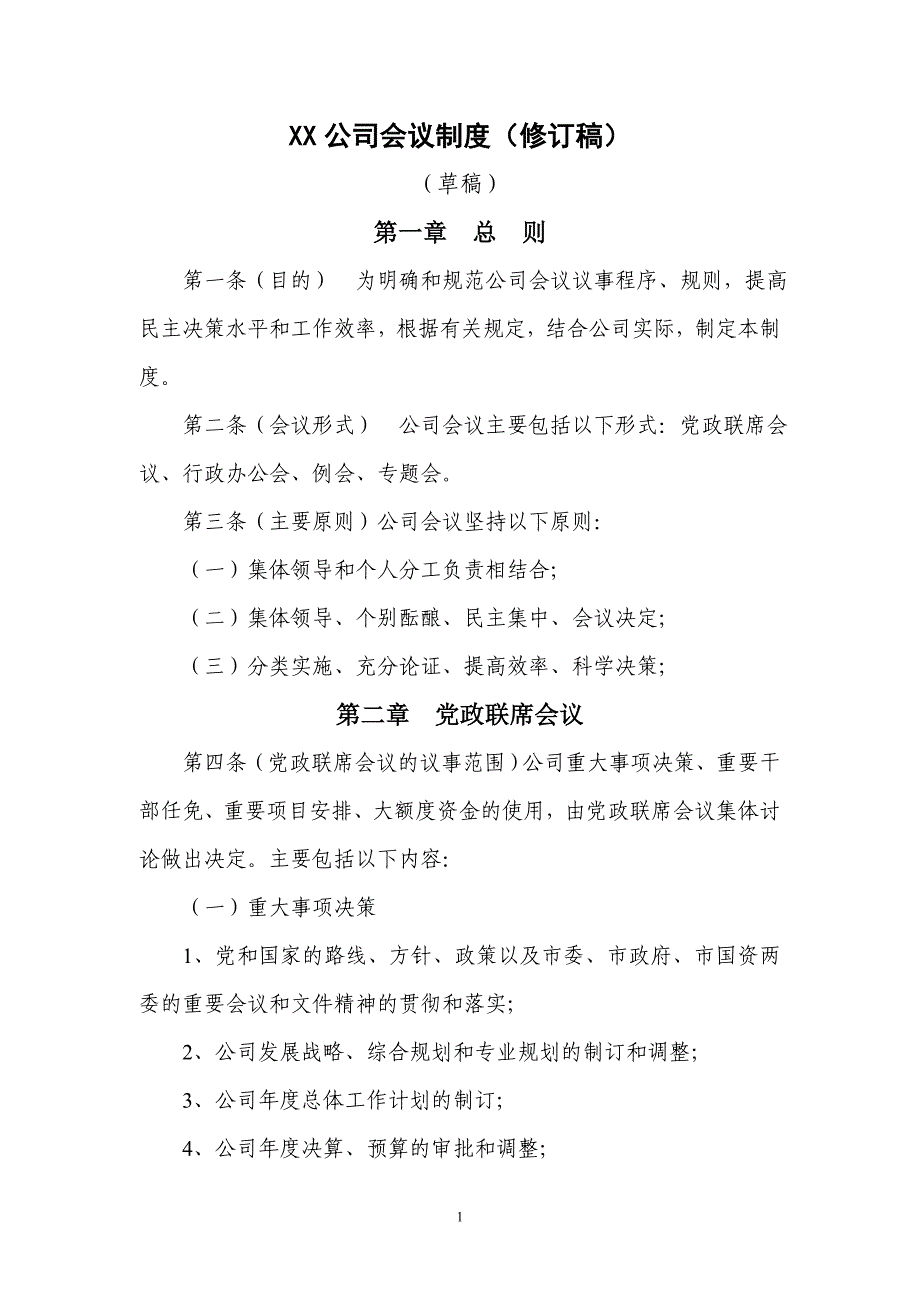 XX 公司会议制度（修订稿）
（草稿）
第一章　总　则
第一条（目的）　为明确和规范公司会议议事程序、规则，提高
民主决策水平和工作效率，根据有关规定，结合公司实际，制定本制
度。
第二条（会议形式）　公司会议主要包括以下形式：党政联席会
议、行政办公会、例会、专题会。
第三条（主要原则）公司会议坚持以下原则：
（一）集体领导和个人分工负责相结合；
（二）集体领导、个别酝酿、民主集中、会议决定；
（三）分类实施、充分论证、提高效率、科学决策；
第二章　党政联席会议
第四条（党政联席会议的议事范围）公司重大事项决策、重要干
部任免、重要项目安排、大额度资金的使用，由党政联席会议集体讨
论做出决定。主要包括以下内容：
（一）重大事项决策
1、党和国家的路线、方针、政策以及市委、市政府、市国资两
委的重要会议和文件精神的贯彻和落实；
2、公司发展战略、综合规划和专业规划的制订和调整；
3、公司年度总体工作计划的制订；
4、公司年度决算、预算的审批和调整；
1